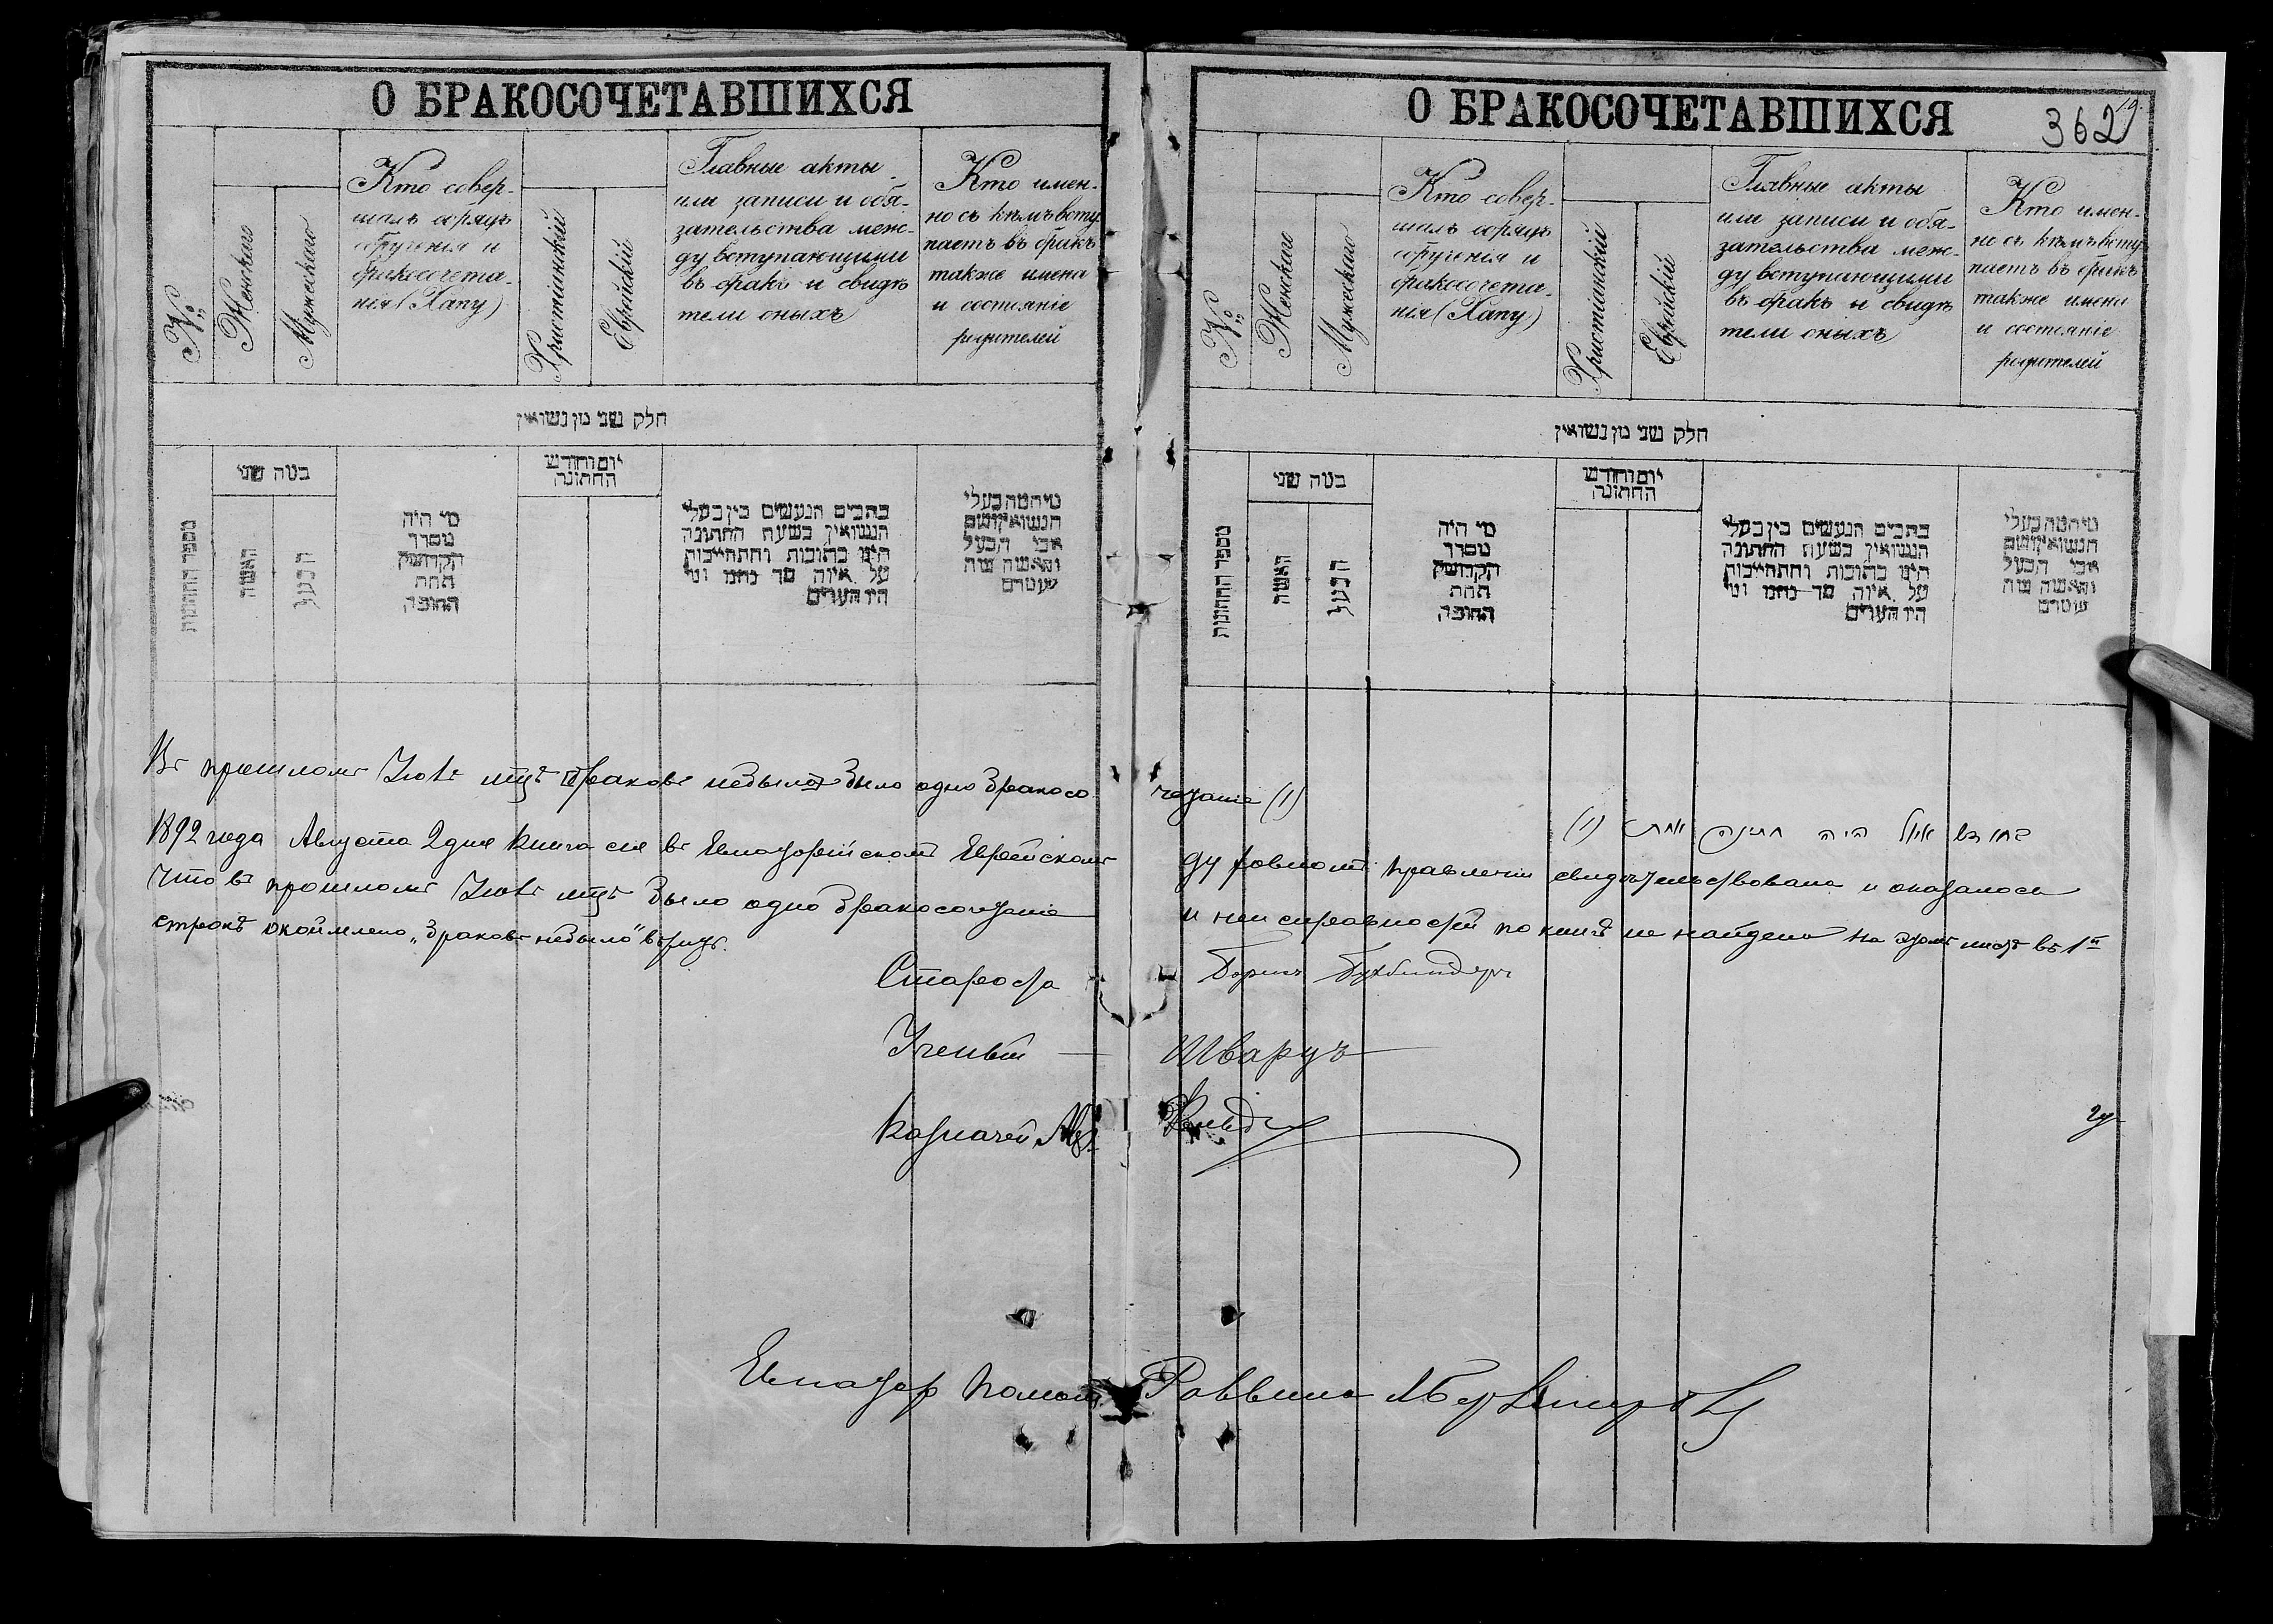 О БРАКОСОЧЕТАВШИХСЯ
№
Женскаго
Мужескаго
Кто совер-
шалъ обрядъ
обрученія и
бракосочета-
нія (Хапу)
Христіанскій
Еврейскій
Главные акты
или записи и обя-
зательства меж-
ду вступающими
въ бракъ и свидѣ
тели оныхъ
Кто имен-
но съ кѣмъ всту
паетъ въ бракъ
также имена
и состояніе
родителей
חלק שני מן נשואין
מספר החתונות
כמה שני
האשה
הבעל
מי היה
מסדר
הקדושין
תחת
החופה
יום וחודש
החתונה
כתבים הנעשים בין בעלי
הנשואין בשעת החתונה
היינו כתובות והתחייבות
על איזה סך נתנו ומי
היו העדים
מי המה בעלי
הנשואין ושם
אבי הבעל
והאשה ומה
מעמדם
О БРАКОСОЧЕТАВШИХСЯ
362
19.
№
Женскаго
Мужескаго
Кто совер-
шалъ обрядъ
обрученія и
бракосочета-
нія (Хапу)
Христіанскій
Еврейскій
Главные акты
или записи и обя-
зательства меж-
ду вступающими
въ бракъ и свидѣ
тели оныхъ
Кто имен-
но съ кѣмъ всту
паетъ въ бракъ
также имена
и состояніе
родителей
חלק שני מן נשואין
מספר החתונות
כמה שני
האשה
הבעל
מי היה
מסדר
הקדושין
תחת
החופה
יום וחודש
החתונה
כתבים הנעשים בין בעלי
הנשואין בשעת החתונה
היינו כתובות והתחייבות
על איזה סך נתנו ומי
היו העדים
מי המה בעלי
הנשואין ושם
אבי הבעל
והאשה ומה
מעמדם
Въ прошломъ Іюлѣ мцѣ браковъ небыло было одно бракосо четаніе (1)
בחודש יולי היה חתונה אחת (1)
1892 года Августа 2 дня книга сія въ Евпаторійскомъ Еврейскомъ духовномъ правленіи свидѣтельствована и оказалось
что въ прошломъ Іюлѣ мцѣ было одно бракосочетаніе и неисправностей по книгѣ не найдено на этомъ листѣ въ 1й
строкѣ окоймлено „браковъ небыло"
Староста Борисъ Бухбиндеръ
Ученый Шварцъ
Казначей Фельд
Евпатор помощ. Раввина